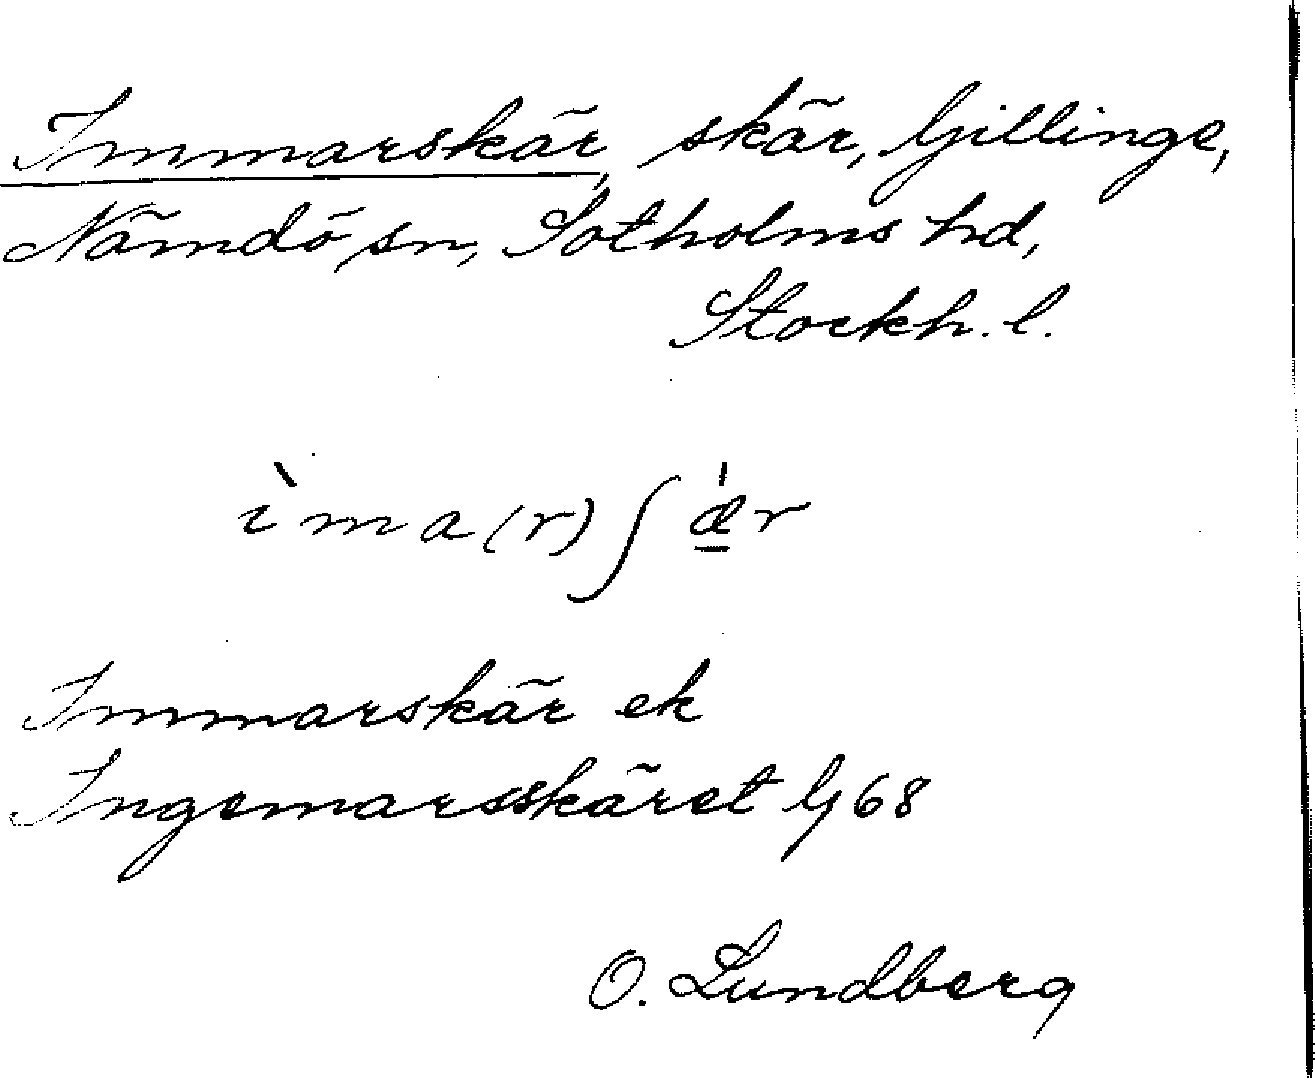 Immarskär, skär, Gillinge,
Nämdö sn, Sotholms hd,
Stockh. l.
ìma(r)ʃæ̲̍r
Immarskär ek
Ingemarsskäret G 68
O. Lundberg